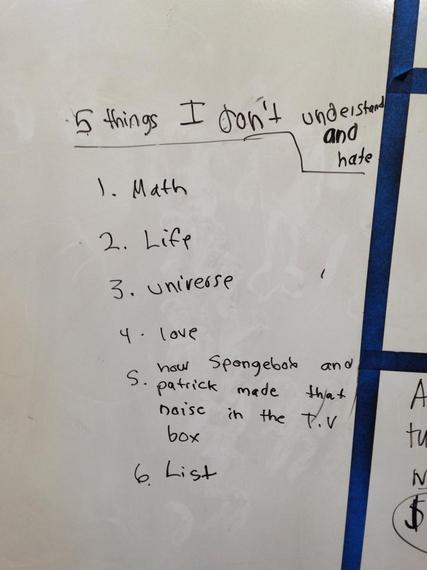 5 things I don't understand
and
hate
1. Math
2. Life
3. universe
4. love
5. how Spongebob and
patrick made that
noise in the T.V
box
6. List
A
tu
$